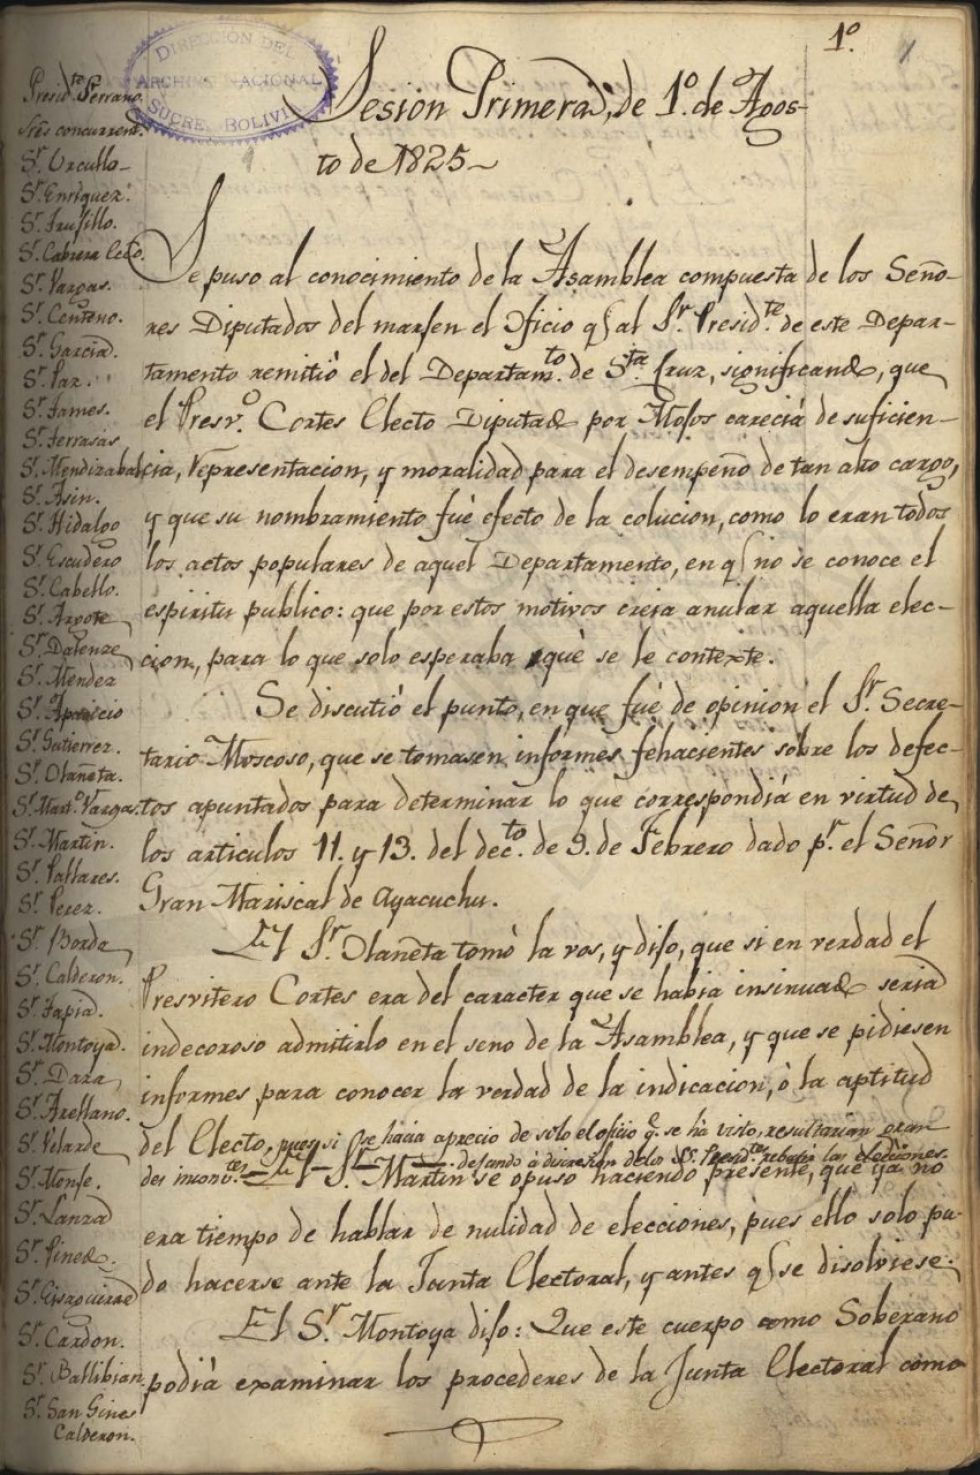 1º.
DIRECCIÓN DEL
ARCHIVO NACIONAL
SUCRE, BOLIVIA
Sesion Primera, de 1º. de Agos-
to de 1825
Presidte. Serrano.
Sres concurrent.
Sr. Urcullo
Sr. Enriquez.
Sr. Trujillo.
Sr. Cabrera
Sr. Vargas.
Sr. Centeno.
Sr. Garcia.
Sr. Paz.
Sr. James.
Sr. Terrasas
Sr. Mendizabal
Sr. Asin.
Sr. Hidalgo
Sr. Escudero
Sr. Cabello.
Sr. Argote
Sr. Dalenze
Sr. Mendez
Sr. Aparicio
Sr. Gutierrez.
Sr. Olañeta.
Sr. Mart.º Vargas.
Sr. Martin.
Sr. Pallares.
Sr. Perez.
Sr. Borda
Sr. Calderon.
Sr. Tapia.
Sr. Montoya.
Sr. Dara
Sr. Arellano.
Sr. Velarde
Sr. Monje.
Sr. Lanza
Sr. Pinedo.
Sr. Eisaguirre
Sr. Cardon.
Sr. Ballibian
Sr. San Gines
Calderon.
Se puso al conocimiento de la Asamblea compuesta de los Seño-
res Diputados del marjen el oficio q al Sr. Presidte. de este Depar-
tamento remitió el del Departamto. de Sta. Cruz, significando, que
el Presvº. Cortes Electo Diputado por Mojos carecia de suficien-
cia, representacion, y moralidad para el desempeño de tan alto cargo,
y que su nombramiento fué efecto de la colucion, como lo eran todos
los actos populares de aquel Departamento, en q no se conoce el
espiritu publico: que por estos motivos creia anular aquella elec-
cion, para lo que solo esperaba que se le contexte.
Se discutió el punto, en que fué de opinion el Sr. Secre-
tario Moscoso, que se tomasen informes fehacientes sobre los defec-
tos apuntados para determinar lo que correspondia en virtud de
los articulos 11. y 13. del decto. de 9. de Febrero dado pr. el Señor
Gran Mariscal de Ayacucho.
El Sr. Olañeta tomó la vos, y dijo, que si en verdad el
Presvitero Cortes era del caracter que se habia insinuado seria
indecoroso admitirlo en el seno de la Asamblea, y que se pidiesen
informes para conocer la verdad de la indicacion, ó la aptitud
del Electo, pues si se hacia aprecio de solo el oficio q. se ha visto, resultarian gran
des inconvtes. dejando á discresion de los SS. Presidtes. rebatir las elecciones.
El Sr. Martin se opuso haciendo presente, que ya no
era tiempo de hablar de nulidad de elecciones, pues ello solo pu-
do hacerse ante la Junta Electoral, y antes q se disolviese.
El Sr. Montoya dijo: Que este cuerpo como Soberano
podia examinar los procederes de la Junta Electoral como